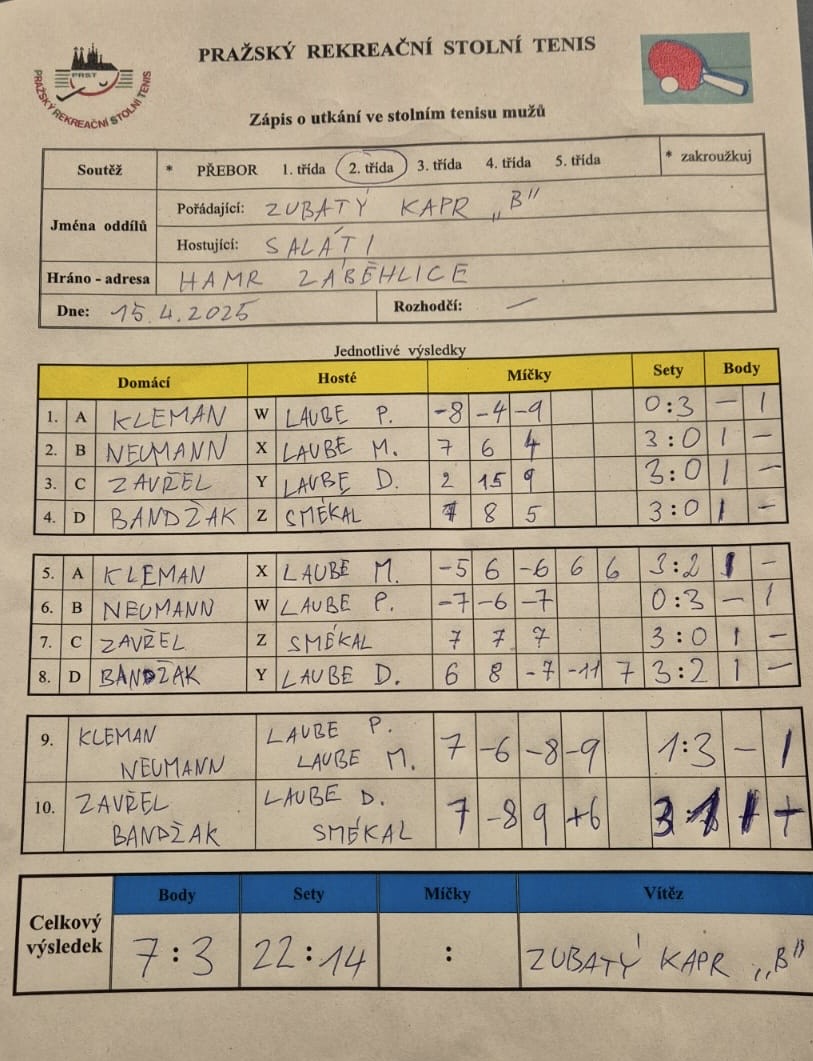 PRAŽSKÝ REKREAČNÍ STOLNÍ TENIS
PRST
PRAŽSKÝ REKREAČNÍ STOLNÍ TENIS
Zápis o utkání ve stolním tenisu mužů
Soutěž * PŘEBOR 1. třída 2. třída 3. třída 4. třída 5. třída * zakroužkuj
Jména oddílů
Pořádající: ZUBATÝ KAPR „B"
Hostující: SALÁTI
Hráno - adresa HAMR ZÁBĚHLICE
Dne: 15.4.2025 Rozhodčí: —
Jednotlivé výsledky
Domácí Hosté Míčky Sety Body
1. A KLEMAN W LAUBE P. -8 -4 -9 0:3 — 1
2. B NEUMANN X LAUBE M. 7 6 4 3:0 1 —
3. C ZAVŘEL Y LAUBE D. 2 15 9 3:0 1 —
4. D BANDŽAK Z SMÉKAL 7 8 5 3:0 1 —
5. A KLEMAN X LAUBE M. -5 6 -6 6 6 3:2 1 —
6. B NEUMANN W LAUBE P. -7 -6 -7 0:3 — 1
7. C ZAVŘEL Z SMÉKAL 7 7 7 3:0 1 —
8. D BANDŽAK Y LAUBE D. 6 8 -7 -11 7 3:2 1 —
9. KLEMAN LAUBE P. 7 -6 -8 -9 1:3 — 1
NEUMANN LAUBE M.
10. ZAVŘEL LAUBE D. 7 -8 9 +6 3:1 1 +
BANDŽAK SMÉKAL
Body Sety Míčky Vítěz
Celkový
výsledek 7:3 22:14 : ZUBATÝ KAPR „B"